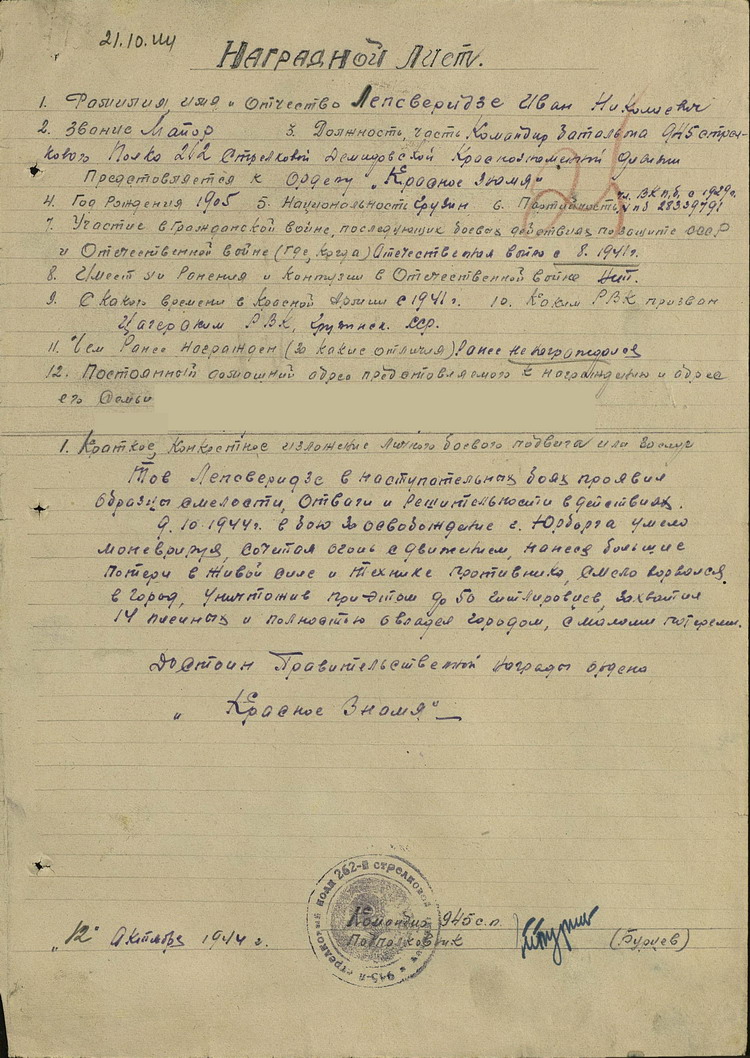 21.10.44
Наградной лист.
1. Фамилия, имя и Отчество Лепсверидзе Иван Николаевич
2. Звание Майор 3. Должность, часть Командир батальона 945 стрел-
кового Полка 262 Стрелковой Демидовской Краснознаменной дивизии
Представляется к Ордену „Красное Знамя"
4. Год Рождения 1905 5. Национальность Грузин 6. Партийность чл. ВКП(б) с 1929г.
п/б 28359791
7. Участие в гражданской войне, последующих боевых действиях по защите СССР
и Отечественной войне (где, когда) Отечественная война с 8. 1941г.
8. Имеет ли Ранения и контузии в Отечественной войне Нет.
9. С Какого времени в Красной Армии с 1941г. 10. Каким РВК призван
Цагерским РВК, Грузинск. ССР.
11. Чем Ранее награжден (за какие отличия) Ранее не награждался
12. Постоянный домашний адрес представляемого к награждению и адрес
его Семьи
1. Краткое, Конкретное изложение личного боевого подвига или заслуг
Тов Лепсверидзе в наступательных боях проявил
образцы смелости, Отваги и Решительности в действиях.
9.10.1944г. в бою за освобождение г. Юрборга умело
моневрируя, сочитая огонь с движением, нанеся большие
потери в живой силе и технике противника, смело ворвался
в город, уничтожив при этом до 50 гитлеровцев, захватил
14 пленных и полностью овладел городом, с малыми потерями.
Достоин Правительственной награды ордена
„Красное Знамя"
"12" Октября 1944 г.
Командир 945 с.п.
Подполковник (Бурцев)
945-й стрелковый полк 262-й стрелковой